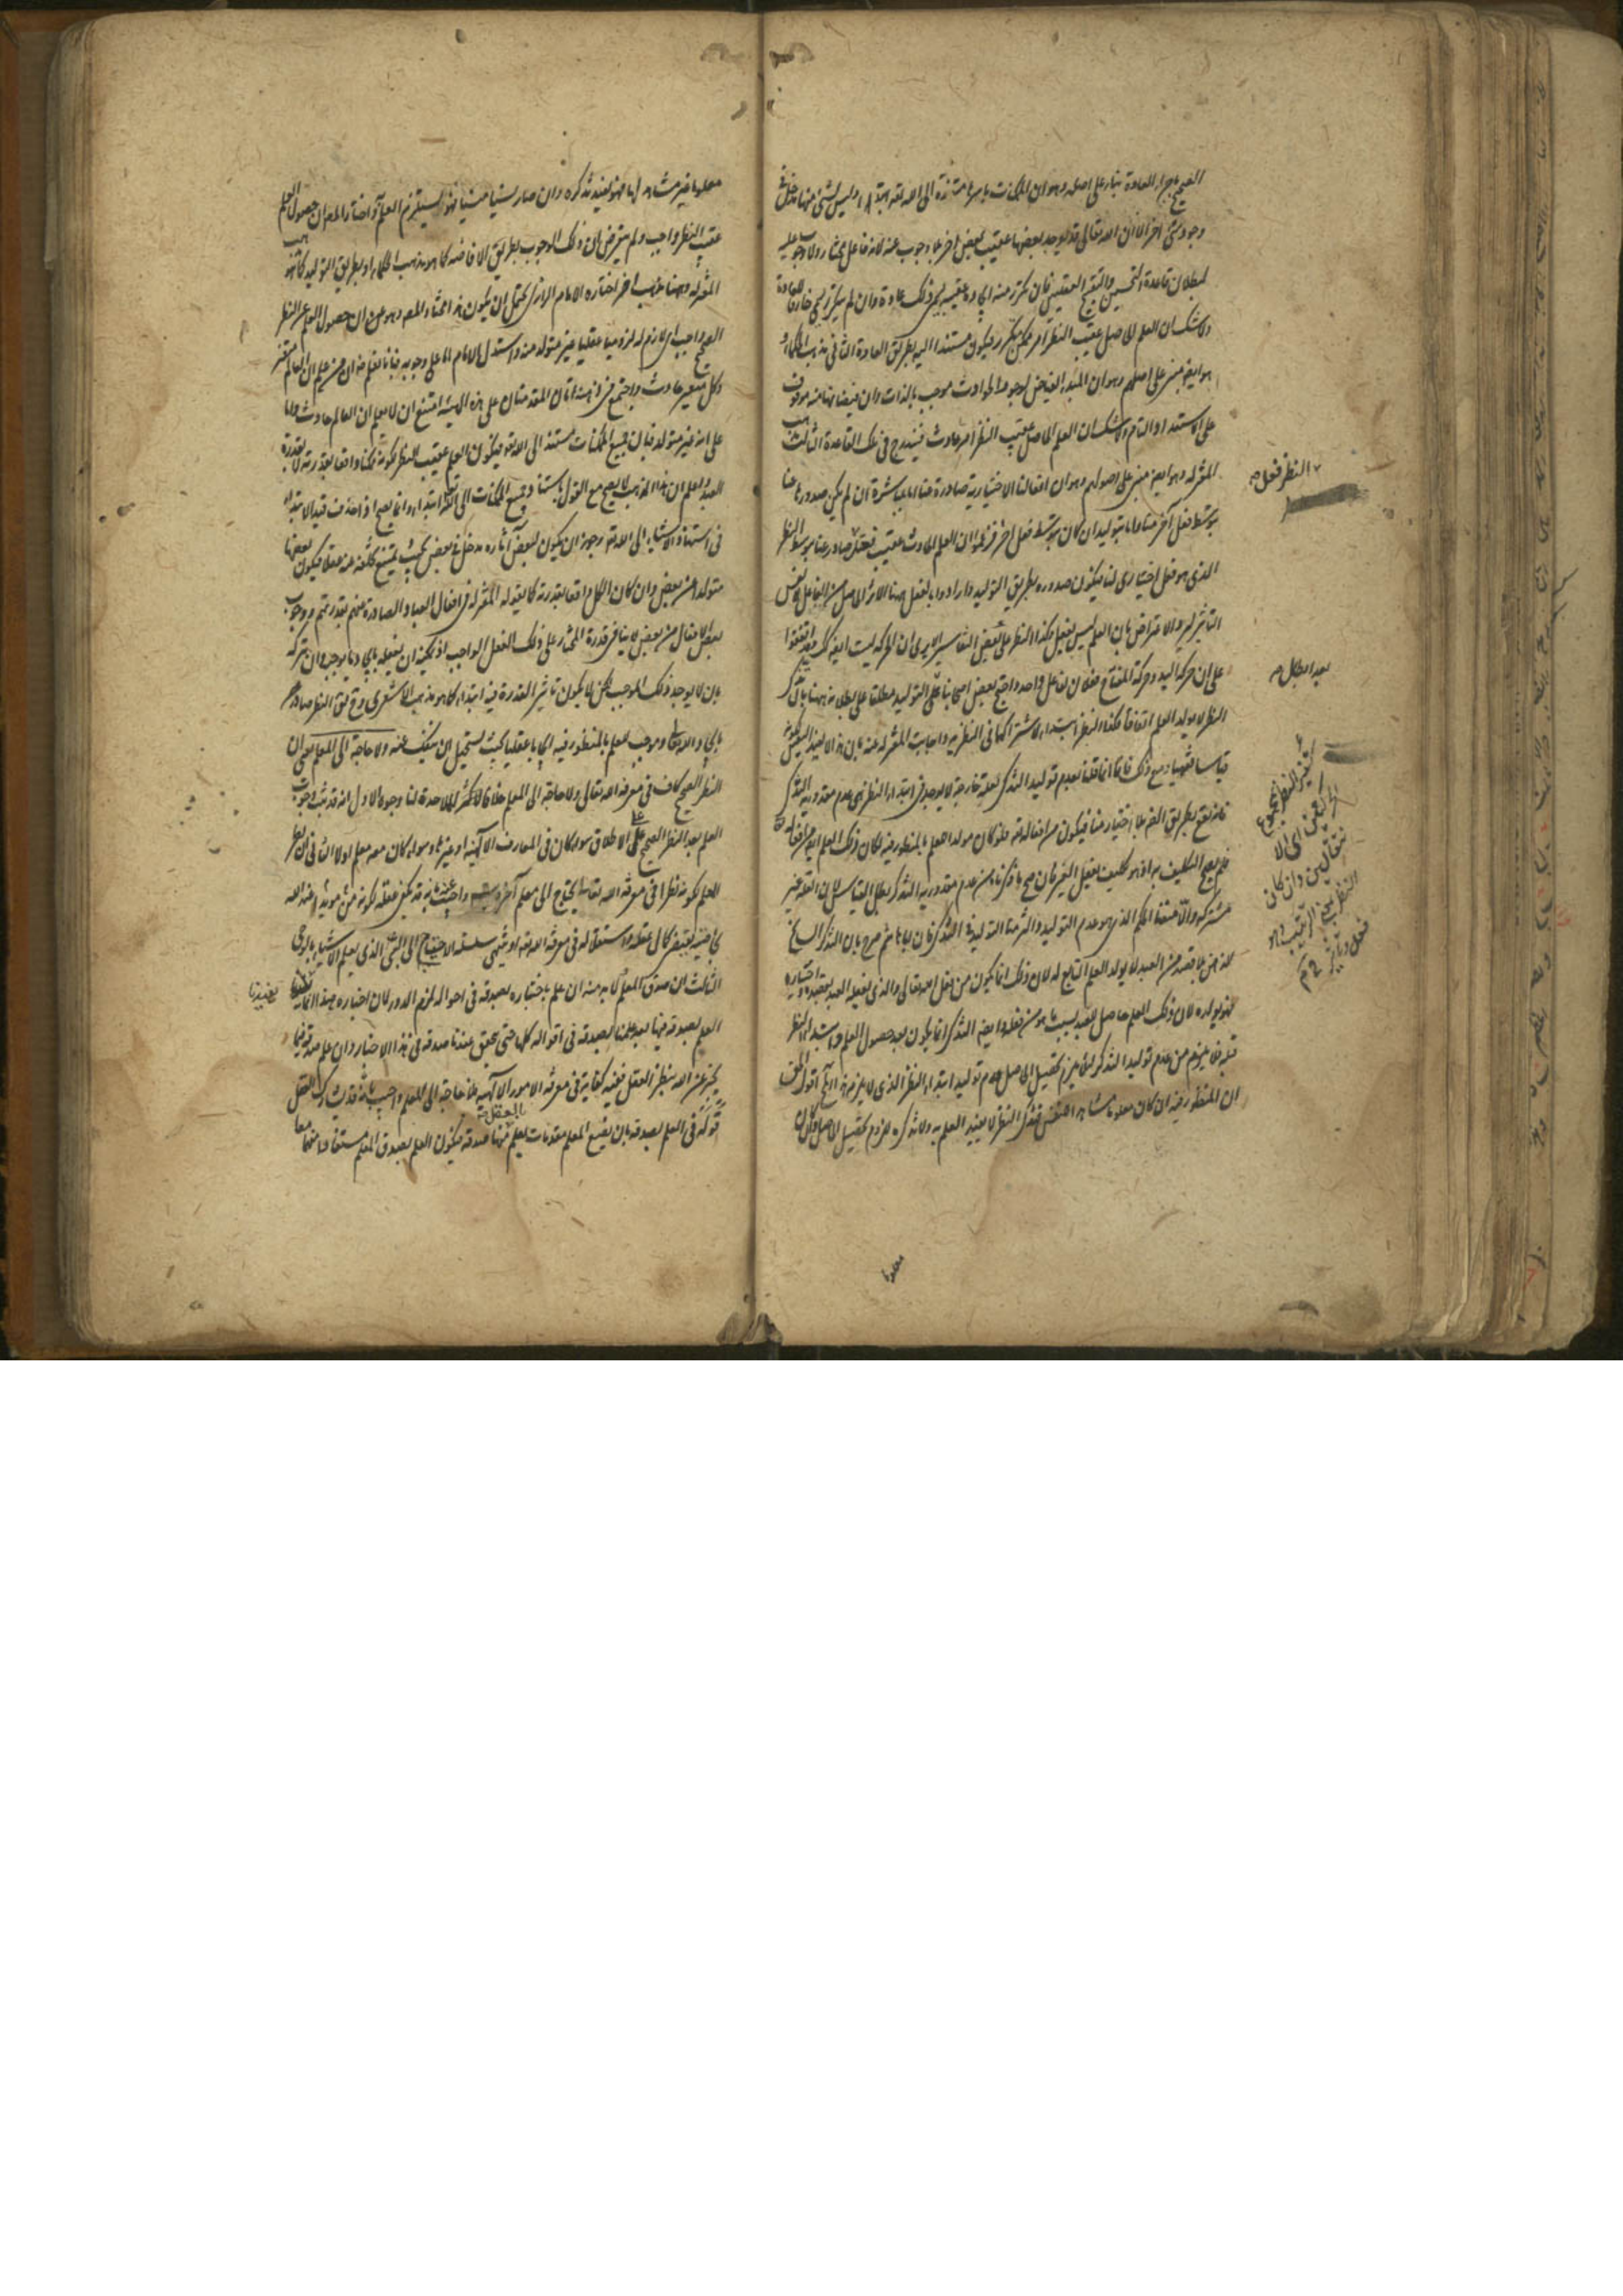 الصحيح باجراء العادة بناء على اصله وهو ان الممكنات باسرها مستندة الى الله تعه ابتداء وليس لشئ منها مدخل في
وجود شئ آخر الا ان الله تعالى قد يوجد بعضها عقيب بعض آخر بلا وجوب عنه لانه فاعل مختار ولا وجوب عليه
لبطلان قاعدة التحسين والتقبيح العقليين فان تكرر منه ايجاده عقيبه سمي ذلك عادة وان لم يتكرر سمي خارقا للعادة
ولا شك ان العلم الحاصل عقيب النظر امر ممكن متكرر فيكون مستندا اليه بطريق العادة الثاني مذهب الحكماء
هو ايض مبني على اصلهم وهو ان المبدء الفياض لوجود الحوادث موجب بالذات وان فيضانها منه موقوف
على الاستعداد التام ولا شك ان العلم الحاصل عقيب النظر امر حادث فيندرج في تلك القاعدة الثالث مذهب
المعتزلة وهو ايض مبني على اصولهم وهو ان افعالنا الاختيارية صادرة عنا اما بمباشرة ان لم يكن صدورها عنا
بتوسط فعل آخر منا واما بتوليد ان كان بتوسط فعل آخر فزعموا ان العلم الحادث عقيب فعل صادر عنا بتوسط النظر
الذي هو فعل اختياري لنا فيكون صدوره بطريق التوليد وارادوا بالفعل ههنا الاثر الحاصل من الفاعل لا نفس
التاثير فيه والاعتراض بان العلم ليس بفعل وكذا النظر على بعض التفاسير الا يرى ان الحركة ليست ايض كذلك وقد اتفقوا
على ان حركة اليد وحركة المفتاح فعلان لفاعل واحد واحتج بعض اصحابنا على التوليد مطلقا على بطلانه ههنا بان تذكر
النظر لا يولد العلم اتفاقا فكذا النظر ابتداء لاشتراكهما في النظرية واجابت المعتزلة عنه بان هذا لا يفيد اليقين لكونه
قياسا فقهيا ومع ذلك فانا انما قلنا بعدم توليد التذكر لعلة فارقة لا توجد في ابتداء النظر هي عدم مقدورية التذكر
فانه يقع بطريق الضرورة بلا اختيار منا فيكون من افعاله تعه فلو كان مولدا للعلم بالمنظور فيه لكان ذلك العلم ايض من افعاله تعه
فلم يصح التكليف به اذ هو تكليف بفعل الغير فان صح ما ذكرناه من عدم مقدورية التذكر بطل القياس لان العلة غير
مشتركة والا منعنا الحكم الذي هو عدم التوليد والتزمنا التوليد في التذكر فان ابا هاشم صرح بان التذكر السانح
للذهن بلا قصد من العبد لا يولد العلم التابع له لان ذلك انما يكون من فعل الله تعالى والذي يفعله العبد بقصده واختياره
فهو يولده لان ذلك العلم حاصل للعبد بسبب ما هو من فعله وايض التذكر انما يكون بعد حصول العلم وابتداء النظر
قبله فلا يلزم من عدم توليد التذكر لئلا يلزم تحصيل الحاصل عدم توليد ابتداء النظر الذي لا يلزم هذا الآتي اقول الحق
ان المنظور فيه ان كان معلوما مشاهدا للنفس فتذكر النظر لا يفيد العلم به ولا تذكره للزوم تحصيل الحاصل وان كان
النظر فعل
بعد ابطال
معلوما غير مشاهد لها فهو يفيد تذكره وان صار نسيا منسيا فهو يستلزم العلم واختار المص ان حصول العلم
عقيب النظر واجب ولم يتعرض لان ذلك الوجوب بطريق الافاضة كما هو مذهب الحكماء او بطريق التوليد كما هو مذهب
المعتزلة وههنا مذهب آخر اختاره الامام الرازي يحتمل ان يكون هذا مختار المص وهو ان حصول العلم عن النظر
الصحيح واجب اي لازم له لزوما عقليا غير متولد منه واستدل الامام اما على وجوبه فبانا نعلم ضرورة ان من علم ان العالم متغير
وكل متغير حادث واجتمع في ذهنه هاتان المقدمتان على هذه الهيئة امتنع ان لا يعلم ان العالم حادث واما
على انه غير متولد فبان جميع الممكنات مستند الى الله تعه فيكون العلم عقيب النظر لكونه ممكنا واقعا بقدرته لا بقدرة
العبد واعلم ان هذا المذهب لا يصح مع القول باستناد جميع الممكنات الى الله تعه ابتداء وانما يصح اذا حذف قيد الابتداء
في استناد الاشياء الى الله تعه وجوز ان يكون لبعض آثاره مدخل في بعض بحيث يمتنع تخلفه عنه عقلا فيكون بعضها
متولدا من بعض وان كان الكل واقعا بقدرته كما يقوله المعتزلة في افعال العباد الصادرة عنهم بقدرتهم ووجوب
بعض الافعال من بعض لا ينافي قدرة المختار على ذلك الفعل الواجب اذ يمكنه ان يفعله بايجاد ما يوجبه وان يتركه
بان لا يوجد ذلك الموجب لكن لا يكون تاثير القدرة فيه ابتداء كما هو مذهب الاشعري فح يق النظر صادر
بايجاد الله تعه وموجب للعلم بالمنظور فيه ايجابا عقليا بحيث يستحيل ان ينفك عنه ولا حاجة الى المعلم بمعنى ان
النظر الصحيح كاف في معرفة الله تعالى ولا حاجة الى المعلم خلافا لاكثر الملاحدة لنا وجوه الاول انه قد ثبت وجوب
العلم بعد النظر الصحيح على الاطلاق سواء كان في المعارف الالهية او غيرها وسواء كان معه معلم اولا الثاني ان نظر
المعلم لكونه نظرا في معرفة الله تعه يحتاج الى معلم آخر ويتسلسل واجيب عنه بانه قد يكفي عقله لكونه مؤيدا من عند الله
بخاصية تقتضي كمال عقله واستقلاله في معرفة الله تعه او ينتهي سلسلة الاحتياج الى النبي الذي يعلم الاشياء بالوحي
الثالث ان صدق المعلم لا بد منه ان علم باخباره بصدقه في اقواله لزم الدور لان اخباره هذا انما يفيدنا
العلم بصدقه فيها بعد علمنا بصدقه في اقواله كلها حتى يتحقق عندنا صدقه في هذا الاخبار وان علم صدقه فيما
يخبر عن الله بنظر العقل ففيه كفاية في معرفة الامور الالهية فلا حاجة الى المعلم واجيب بانه قد يشارك العقل
قوله في العلم بصدقه بان يضع المعلم مقدمات يعلم العقل منها صدقه فيكون العلم بصدق المعلم مستفادا منهما معا
يفيدنا